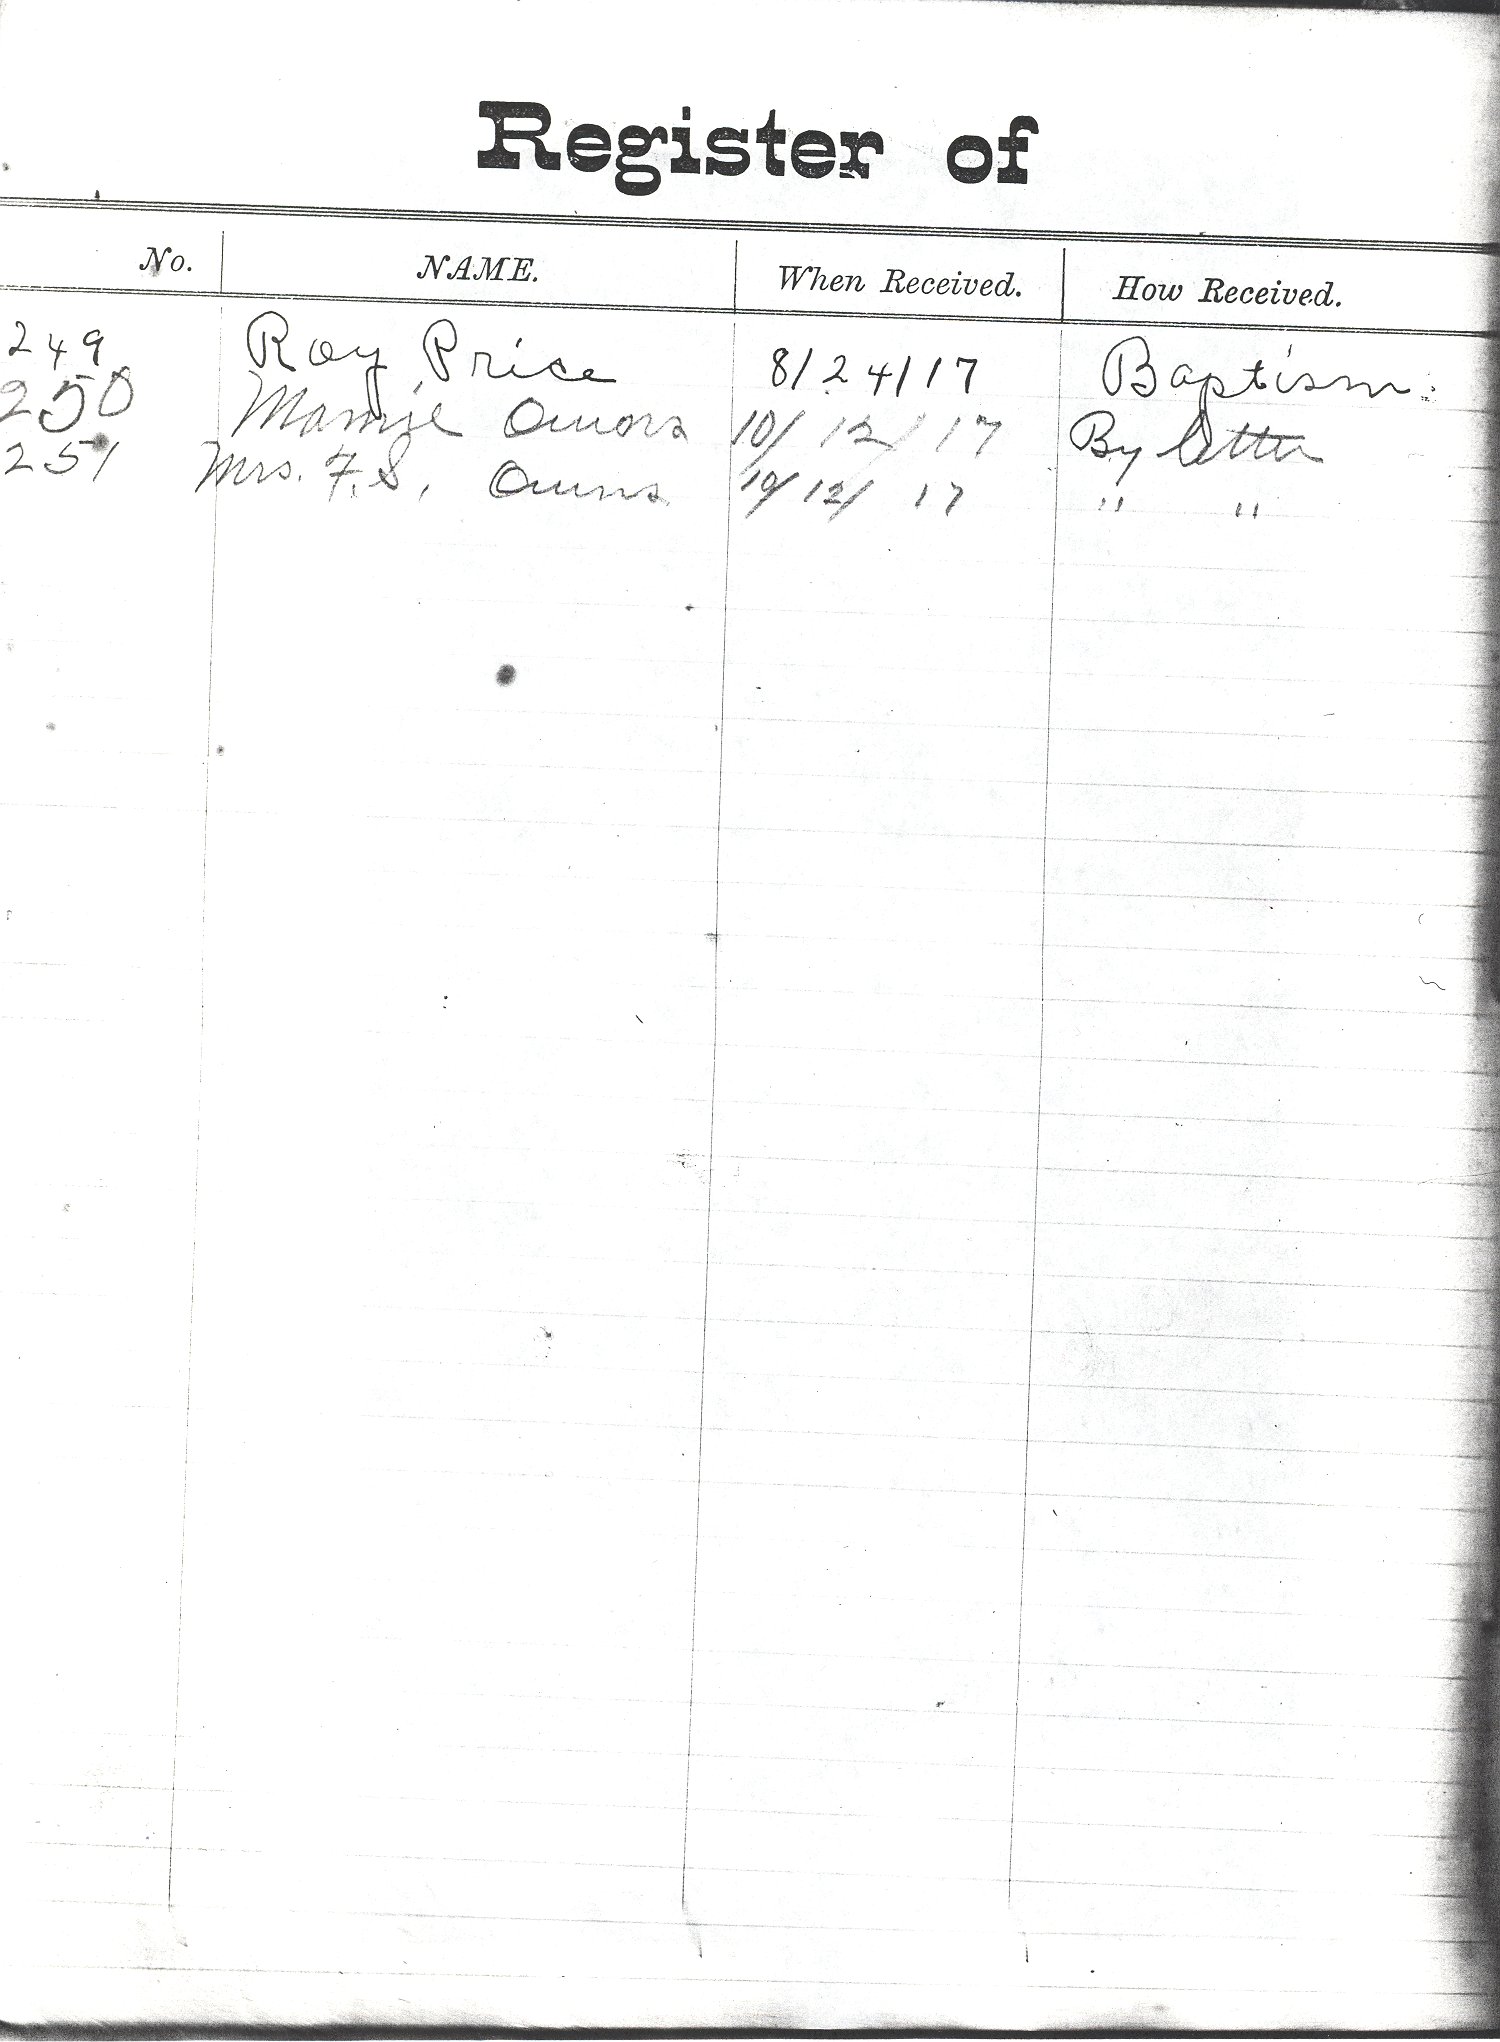 Register of
No. NAME. When Received. How Received.
249 Roy Price 8/24/17 Baptism.
250 Mamie Owens 10/12/17 By letter
251 Mrs. F. S. Owens 10/12/17 " "